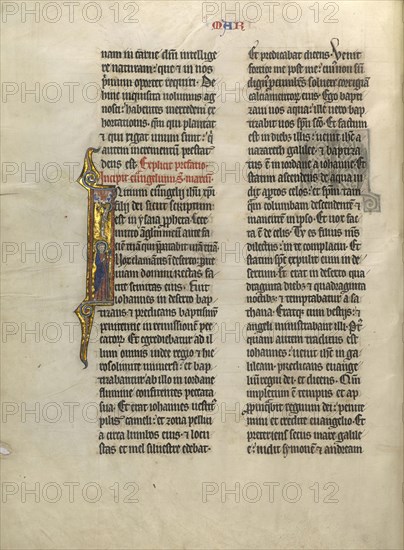 MAR
nam in carne dñm intellige
re naturam: que et in nos
hortationis. qm̃ qui plantat
& qui rigat unum sunt: q
autem incrementum prestat
deus est Explicit prefatio
Incipit euangelium s. marcū.
INitium euangelij ihũ xpi
filij dei sicut scriptum
est in ysaia propheta Ecce
mitto angelum meum ante fa
ciem tuam qui preparabit uiam tuam
Vox clamantis in deserto. para
te uiam domini rectas fa
cite semitas eius. Fuit
iohannes in deserto bap
tizans & predicans baptismū
penitentie in remissione pec
catoꝝ. Et egrediebatur ad il
lum omnis iudee regio & ihe
rosolimite uniuersi: et bap
tizabantur ab illo in iordane
flumine confitentes peccata
sua. Et erat iohannes uestit
pilis cameli: et zona pellicia
circa lumbos eius: et locu
stas et mel siluestre edebat.
Et predicabat dicens. Venit
fortior me post me: cui non sū
dignꝰ procumbens soluere corrigiā
calciamentoꝝ eius. Ego bapti
zaui uos aqua: ille uero bap
tizabit uos spũ sctō. Et factum
est in diebus illis: uenit ihc a
nazareth galilee & baptiza
tus est in iordane a iohanne. Et
statim ascendens de aqua ui
dit aptos celos: et spm̄ tanqu
am columbam descendente &
manente in ipso. Et uox fac
ta est de celis. Tu es filius mꝰ
dilectus: in te complacui. Et
statim sps expulit eum in de
sertum. Et erat in deserto qua
draginta diebus & quadraginta
noctibꝰ: & temptabatur a sa
thana. Eratque cum bestijs: et
angeli ministrabant illi. Pꝰ
quam autem traditus est
iohannes: uenit ihc in ga
lileam. predicans euangelium
regni dei: et dicens. Qm̄
impletum est tempus et ap
propinquit regnum dei: penite
mini et credite euangelio. Et
preteriens secus mare galile
e: uidit symonem & andream
PHOTO 12